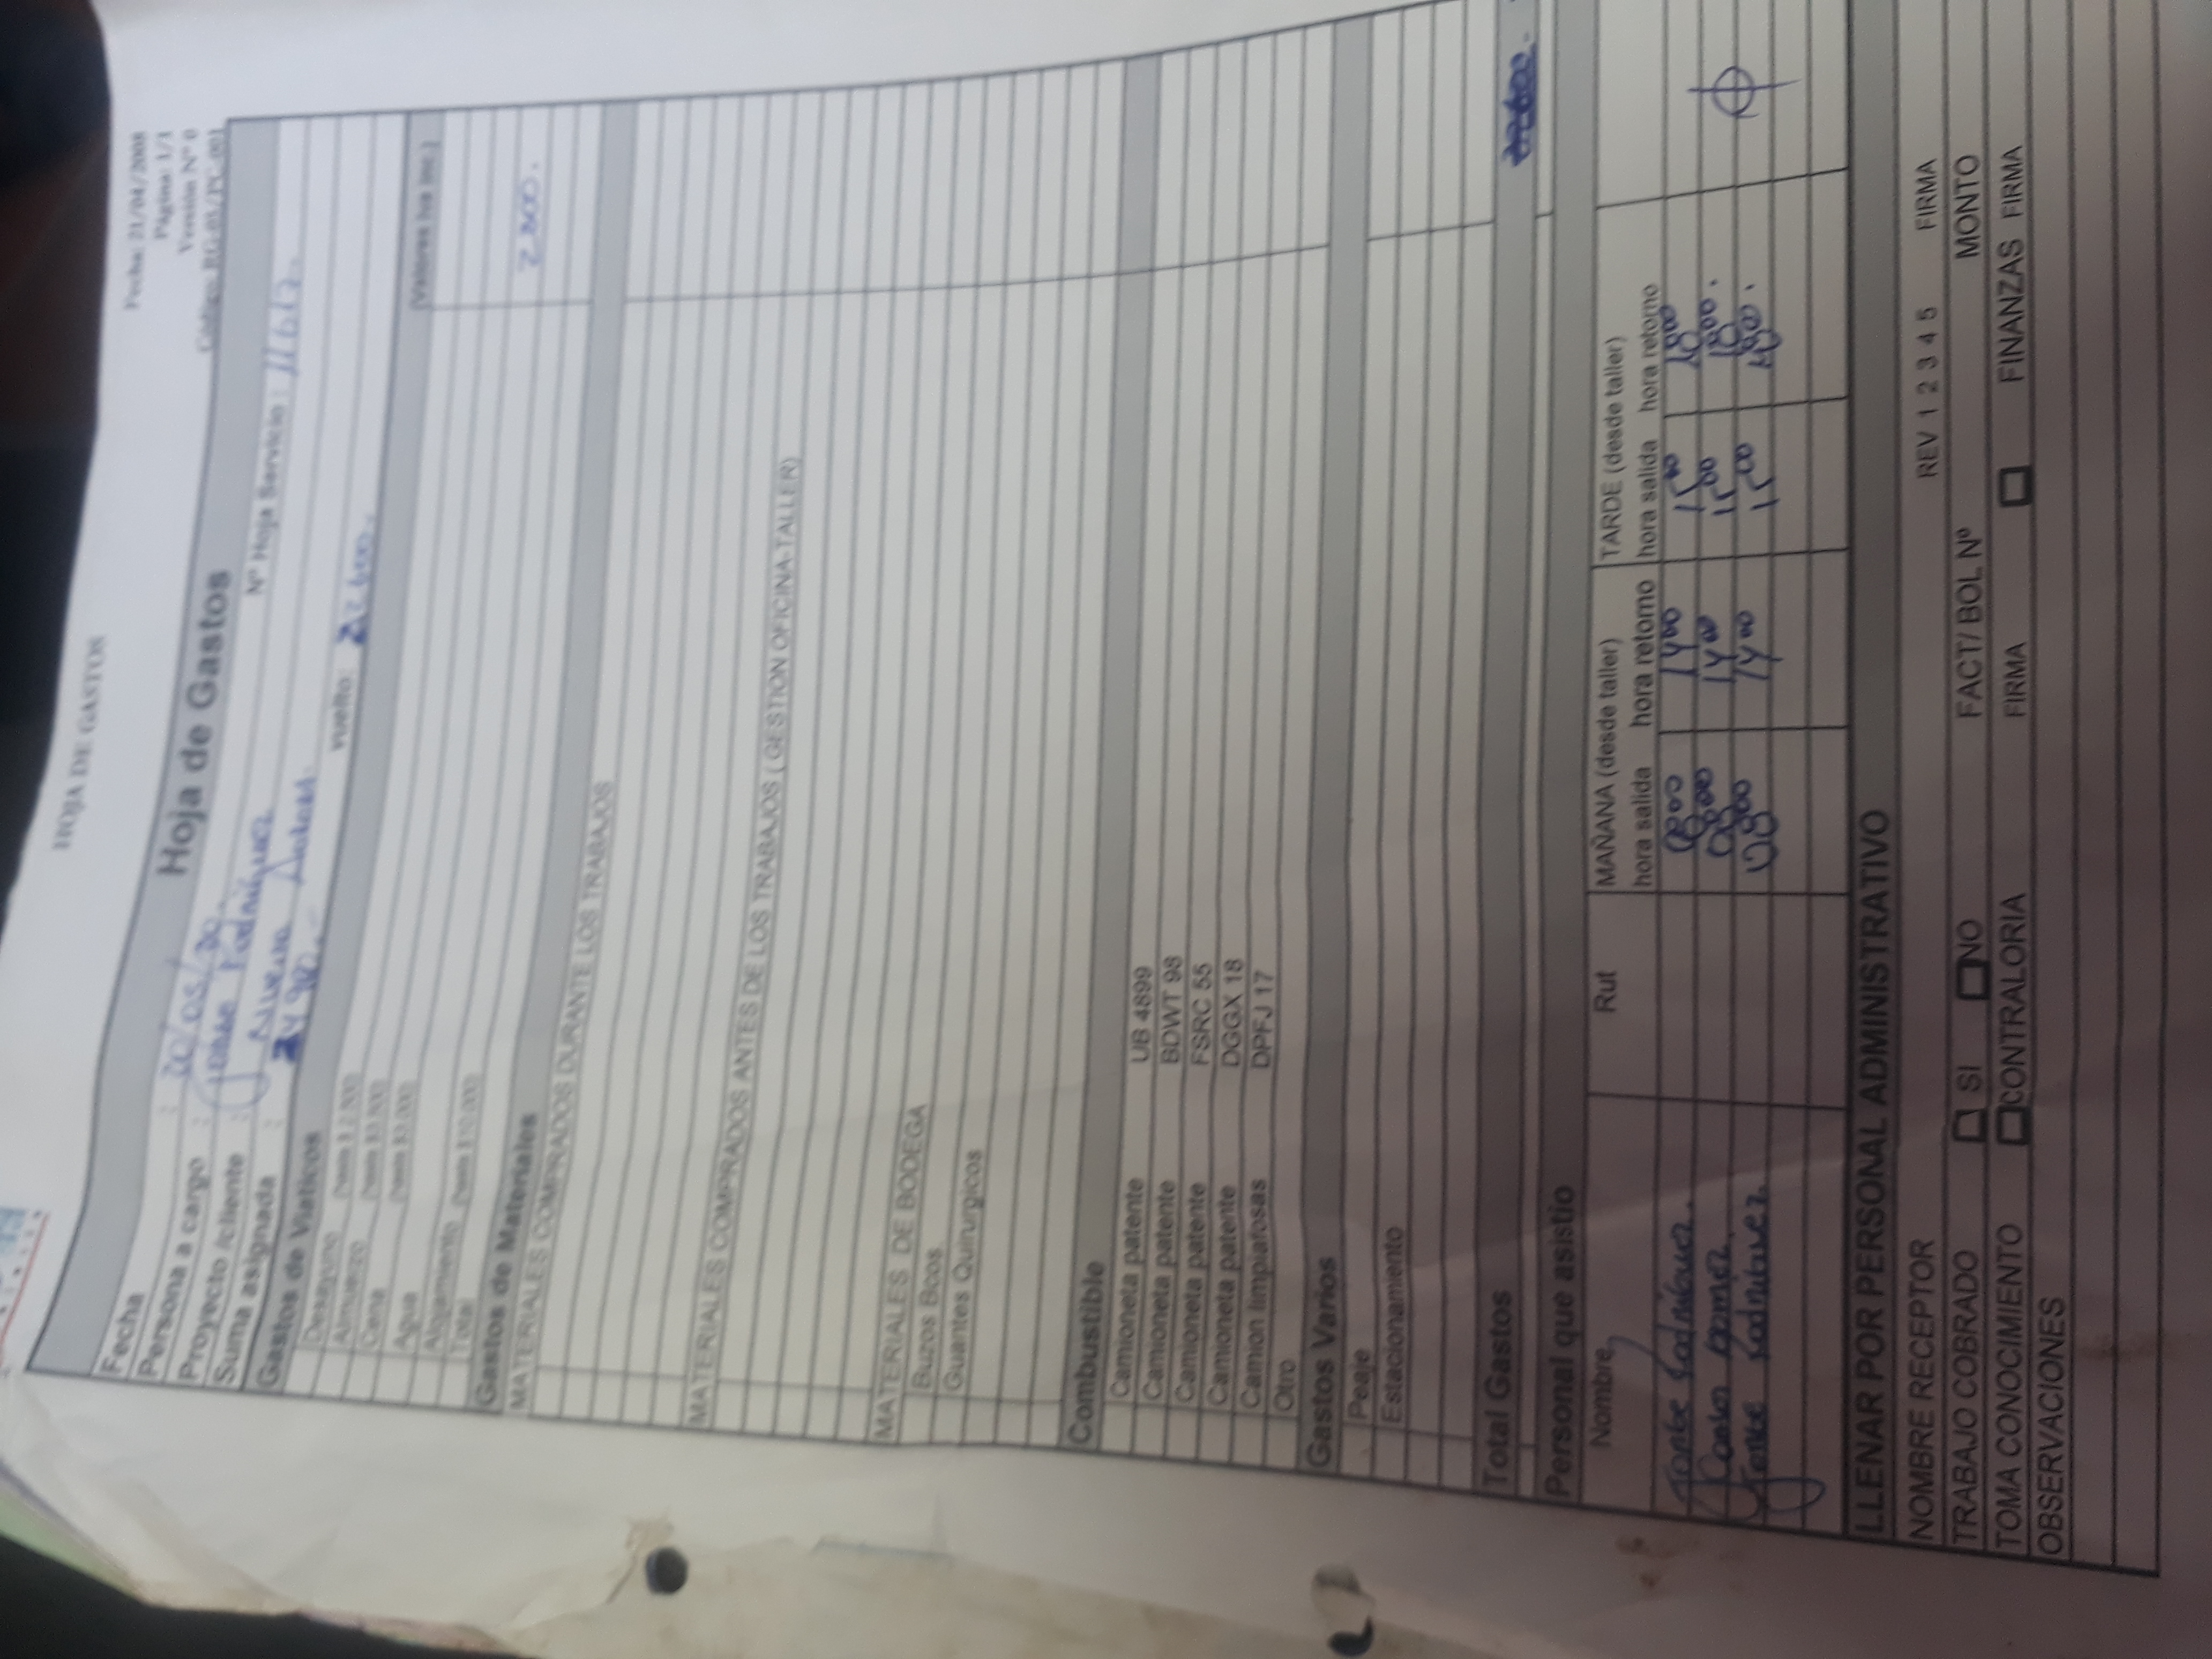 HOJA DE GASTOS
Fecha: 21/04/2008
Página: 1/1
Versión Nº 0
Código: RG-05/PC-001
Hoja de Gastos
Fecha : 20/05/20.
Nº Hoja Servicio : 11617.
Persona a cargo : Jorge Rodriguez
Proyecto /cliente : Nueva
Suma asignada : 24.980.- vuelto: 22.600.
Gastos de Viaticos (Valores iva inc.)
Desayuno (hasta $ 2.500)
Almuerzo (hasta $3.500)
Cena (hasta $3.000)
Agua 2.800.
Alojamiento (hasta $10.000)
Total
Gastos de Materiales
MATERIALES COMPRADOS DURANTE LOS TRABAJOS
MATERIALES COMPRADOS ANTES DE LOS TRABAJOS ( GESTION OFICINA-TALLER)
MATERIALES DE BODEGA
Buzos Bcos.
Guantes Quirurgicos
Combustible
Camioneta patente UB 4899
Camioneta patente BDWT 98
Camioneta patente FSRC 55
Camioneta patente DGGX 18
Camion limpiafosas DPFJ 17
Otro
Gastos Varios
Peaje
Estacionamiento
Total Gastos 22600.
Personal que asistio
Nombre Rut MAÑANA (desde taller) TARDE (desde taller)
hora salida hora retorno hora salida hora retorno
Jorge Rodriguez. 0800 1400 1500 1800
Carlos Gomez. 0800 1400 1500 1800.
Jorge Rodriguez. 0800 1400 1500 1800.
LLENAR POR PERSONAL ADMINISTRATIVO
NOMBRE RECEPTOR REV 1 2 3 4 5 FIRMA
TRABAJO COBRADO SI NO FACT/ BOL Nº MONTO
TOMA CONOCIMIENTO CONTRALORIA FIRMA FINANZAS FIRMA
OBSERVACIONES